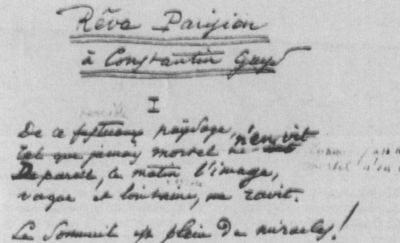 Rêve Parisien
à Constantin Guys
I
De ce fastueux païsage,
Tel que jamais mortel n'en vit
Pareil, ce matin l'image,
vague et lointaine, me ravit.
Le Sommeil est plein de miracles!